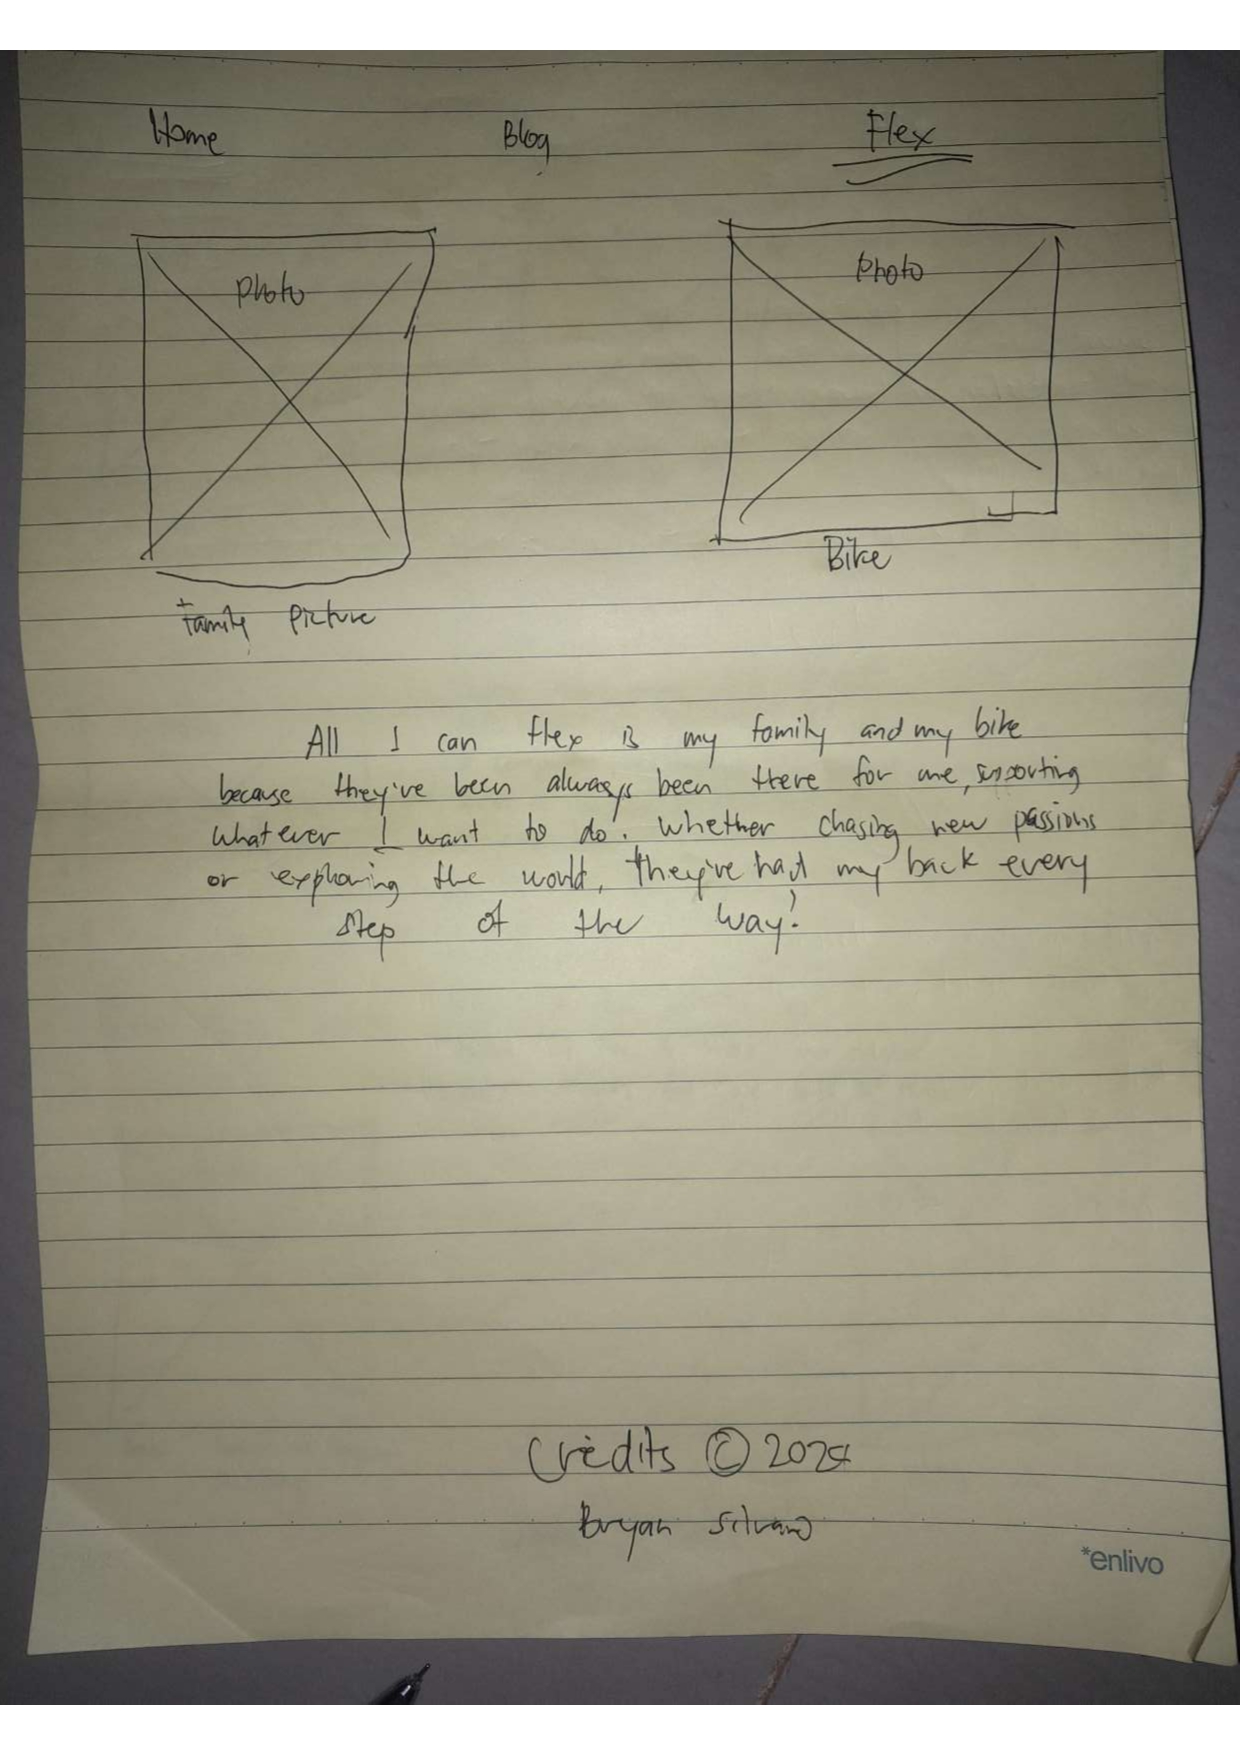 Home Blog Flex
Photo Photo
Bike
Family Picture
All I can flex is my family and my bike
because they've been always been there for me, supporting
whatever I want to do. Whether chasing new passions
or exploring the world, they've had my back every
step of the way!
Credits © 2024
Bryan Silvano
*enlivo